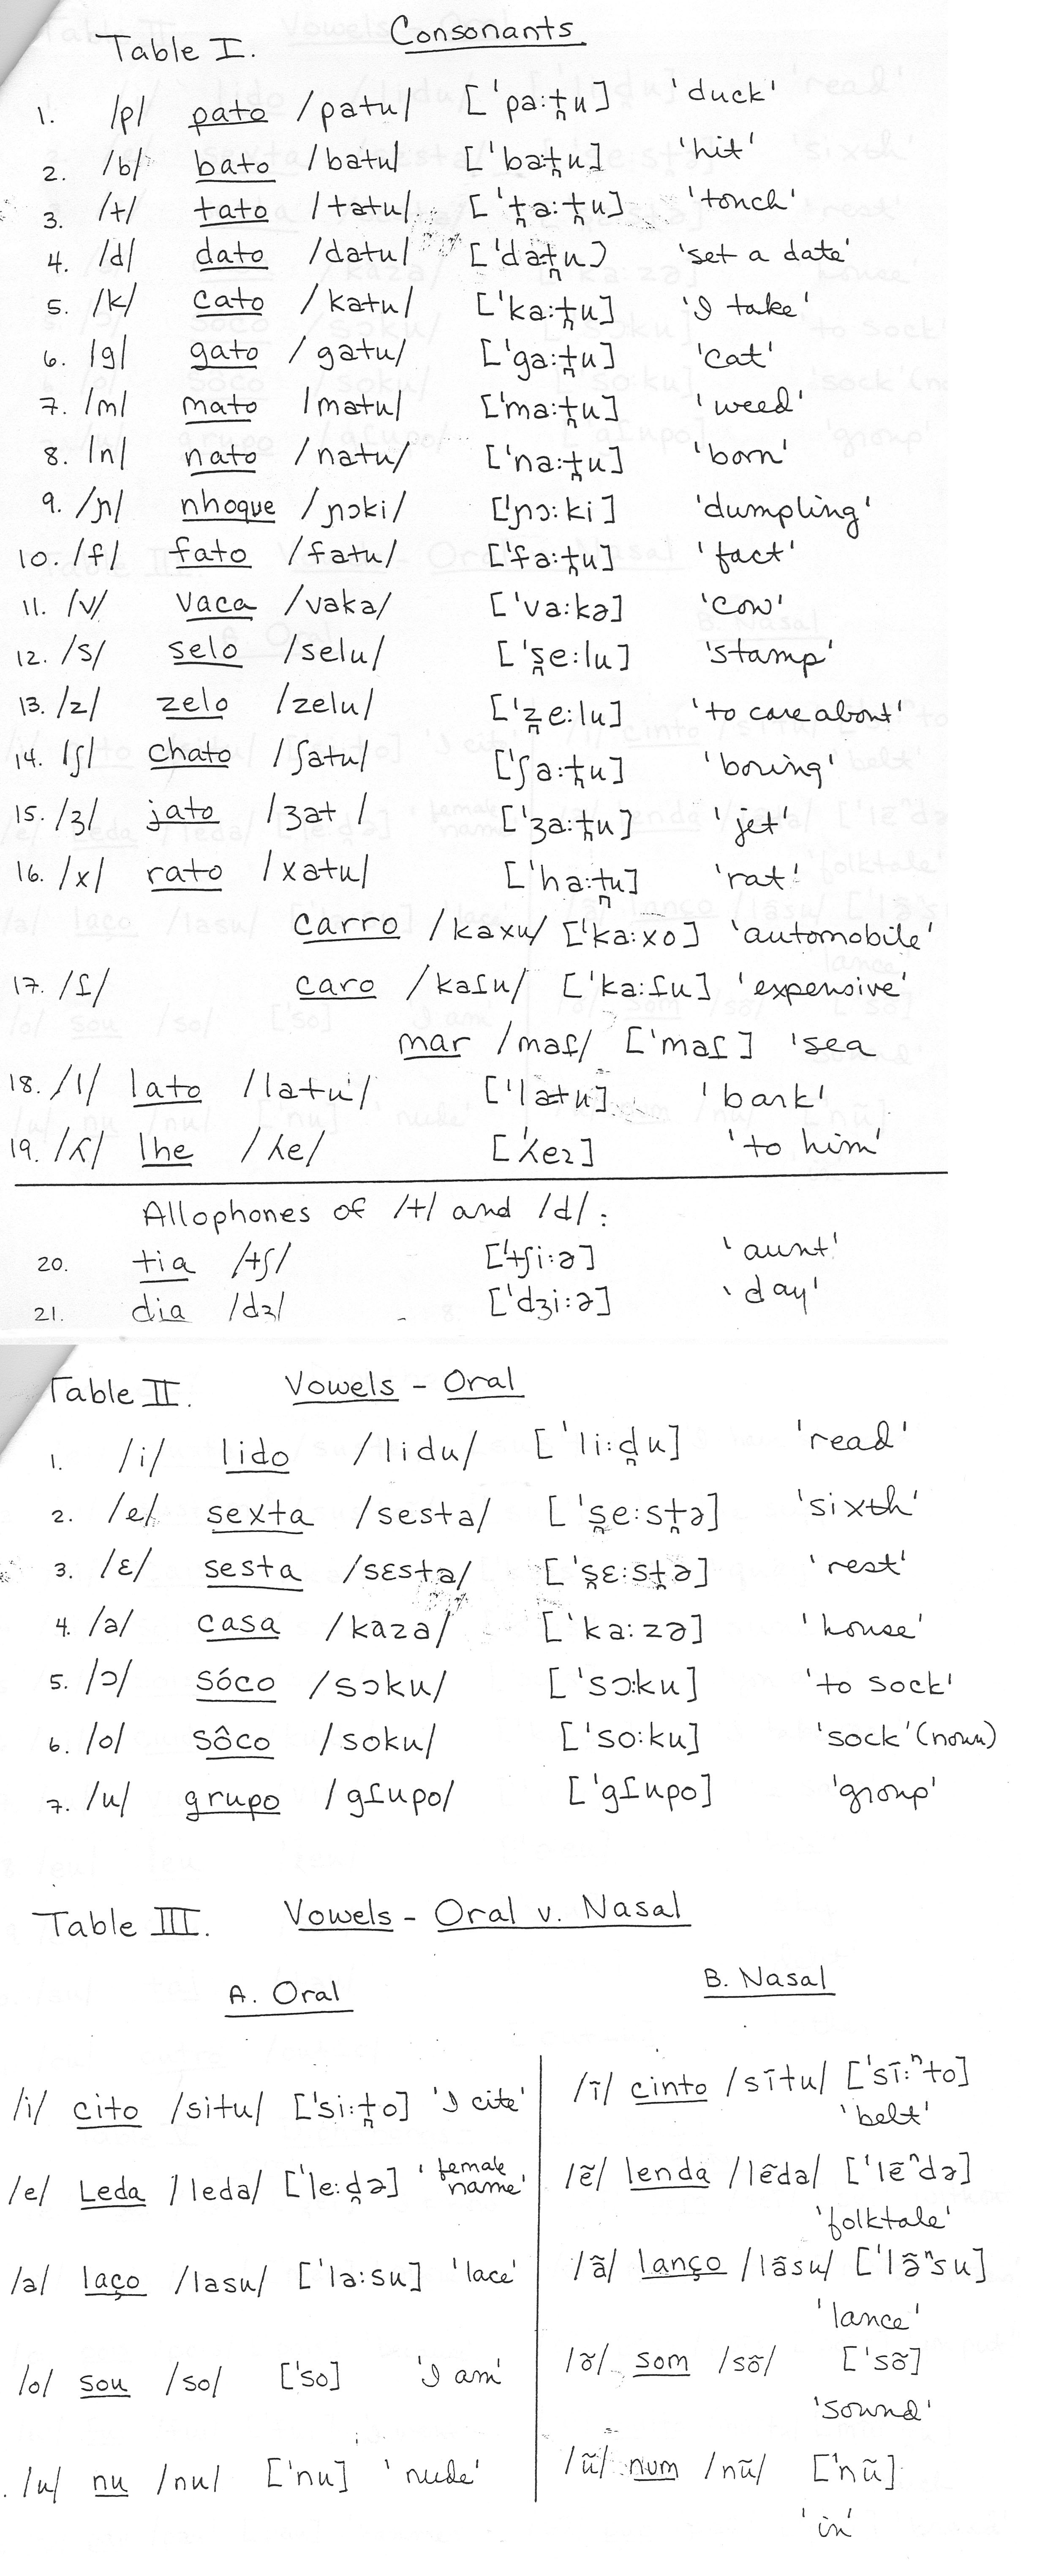 Table I. Consonants
1. /p/ pato /patu/ ['pa:t̪u] 'duck'
2. /b/ bato /batu/ ['bat̪u] 'hit'
3. /t/ tato /tatu/ ['t̪a:t̪u] 'touch'
4. /d/ dato /datu/ ['dat̪u] 'set a date'
5. /k/ cato /katu/ ['ka:t̪u] 'I take'
6. /g/ gato /gatu/ ['ga:t̪u] 'cat'
7. /m/ mato /matu/ ['ma:t̪u] 'weed'
8. /n/ nato /natu/ ['na:t̪u] 'born'
9. /ɲ/ nhoque /ɲɔki/ ['ɲɔ:ki] 'dumpling'
10. /f/ fato /fatu/ ['fa:t̪u] 'fact'
11. /v/ vaca /vaka/ ['va:kə] 'cow'
12. /s/ selo /selu/ ['s̪e:lu] 'stamp'
13. /z/ zelo /zelu/ ['z̪e:lu] 'to care about'
14. /ʃ/ chato /ʃatu/ ['ʃa:t̪u] 'boring'
15. /ʒ/ jato /ʒat / ['ʒa:t̪u] 'jet'
16. /x/ rato /xatu/ ['ha:t̪u] 'rat'
carro /kaxu/ ['ka:xo] 'automobile'
17. /ɾ/ caro /kaɾu/ ['ka:ɾu] 'expensive'
mar /maɾ/ ['maɾ] 'sea
18. /l/ lato /latu/ ['latu] 'bark'
19. /ʎ/ lhe /ʎe/ ['ʎeɪ] 'to him'
Allophones of /t/ and /d/:
20. tia /tʃ/ ['tʃi:ə] 'aunt'
21. dia /dʒ/ ['dʒi:ə] 'day'
Table II. Vowels - Oral
1. /i/ lido /lidu/ ['li:d̪u] 'read'
2. /e/ sexta /sesta/ ['s̪e:st̪ə] 'sixth'
3. /ɛ/ sesta /sɛsta/ ['s̪ɛ:st̪ə] 'rest'
4. /a/ casa /kaza/ ['ka:zə] 'house'
5. /ɔ/ sóco /sɔku/ ['sɔ:ku] 'to sock'
6. /o/ sôco /soku/ ['so:ku] 'sock' (noun)
7. /u/ grupo /gɾupo/ ['gɾupo] 'group'
Table III. Vowels - Oral v. Nasal
A. Oral B. Nasal
/i/ cito /situ/ ['si:t̪o] 'I cite' /ĩ/ cinto /sĩtu/ ['sĩ:ⁿto]
'belt'
/e/ Leda /leda/ ['le:d̪ə] 'female name' /ẽ/ lenda /lẽda/ ['lẽⁿdə]
'folktale'
/a/ laço /lasu/ ['la:su] 'lace' /ã/ lanço /lãsu/ ['lə̃ⁿsu]
'lance'
/o/ sou /so/ ['so] 'I am' /õ/ som /sõ/ ['sõ]
'sound'
/u/ nu /nu/ ['nu] 'nude' /ũ/ num /nũ/ ['nũ]
'in'